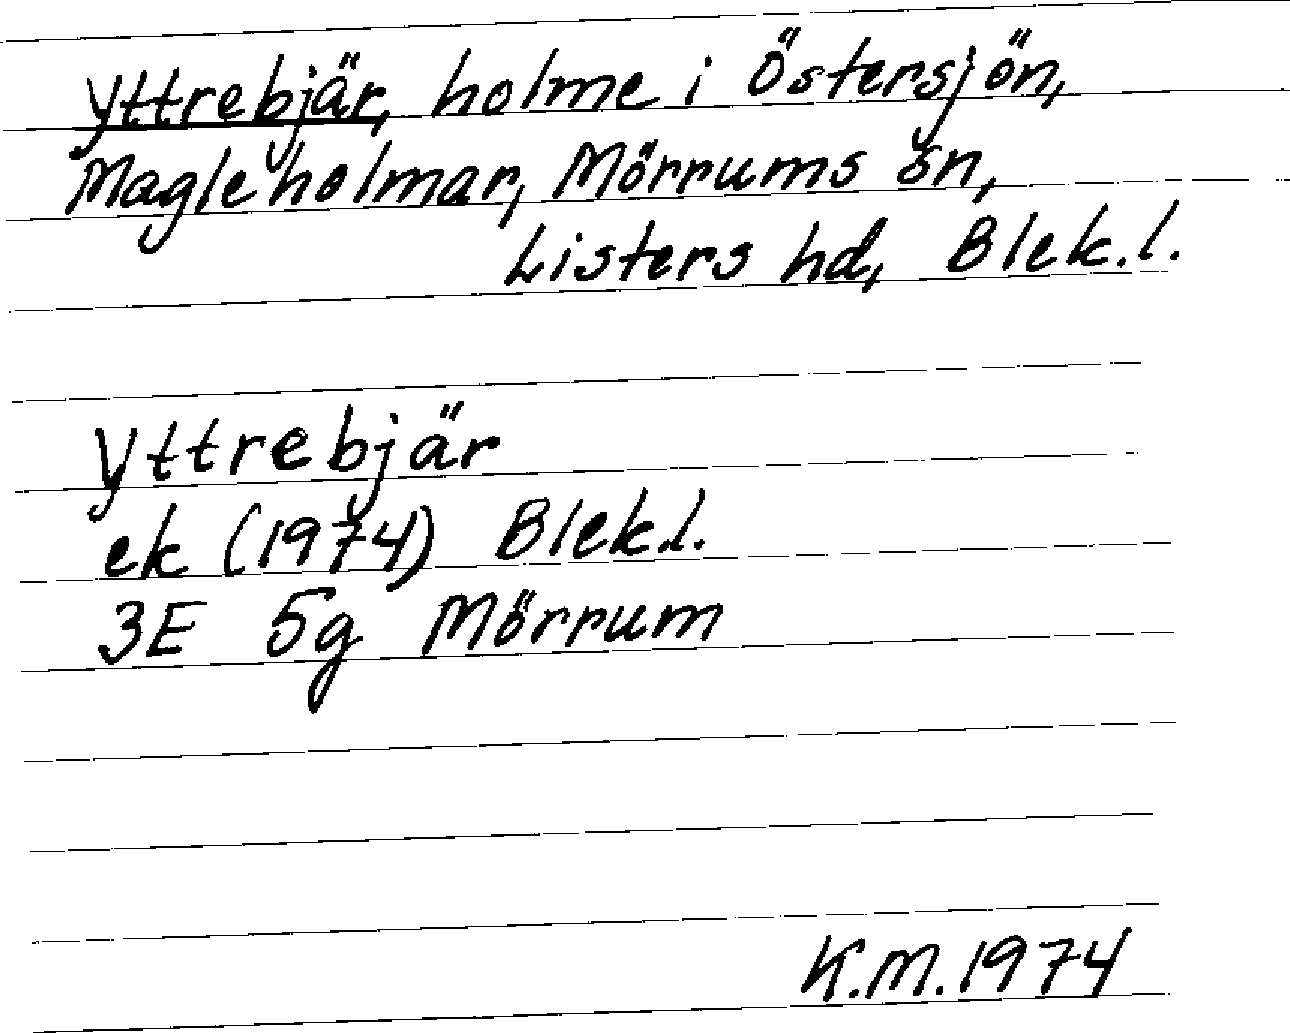 Yttrebjär, holme i Östersjön,
Magleholmar, Mörrums sn,
Listers hd, Blek.l.
Yttrebjär
ek (1974) Blek.l.
3E 5g Mörrum
K.M. 1974